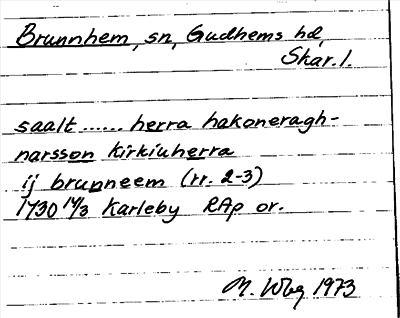 Brunnhem, sn, Gudhems hd,
Skar. l.
saalt ...... herra hakoneragh-
narsson kirkiuherra
ij brunneem (rr. 2-3)
1730 14/3 Karleby RAp or.
M. Wbg 1973